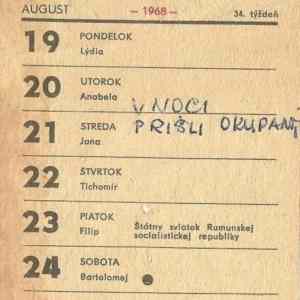 AUGUST – 1968 – 34. týždeň
19 PONDELOK
Lýdia
20 UTOROK
Anabela
V NOCI
21 STREDA PRIŠLI OKUPANT
Jana
22 ŠTVRTOK
Tichomír
23 PIATOK
Filip Štátny sviatok Rumunskej
socialistickej republiky
24 SOBOTA
Bartolomej